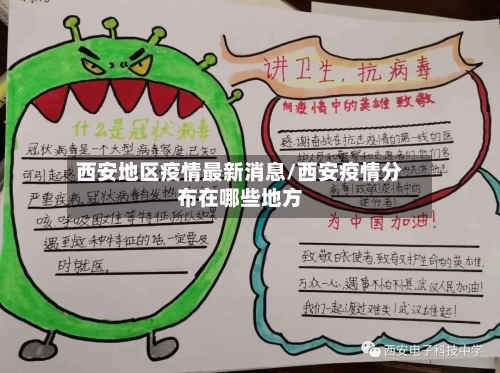 什么是冠状病毒
冠状病毒是一个大型病毒家庭,已知
可引起感
严重疾病
咳、呼吸困难等特征,所以如果
遇到这种特征的话,一定要及
时就医。
讲卫生,抗病毒
向疫情中的英雄致敬
感谢奋战在抗击疫情的第一线的医
为中国加油!
致敬白衣使者,致敬守护生命的英雄,
万众一心,遇事不怕不惧,武汉人民加油!
我们一起渡过难关!武汉雄起!
西安地区疫情最新消息/西安疫情分
布在哪些地方
西安电子科技中学